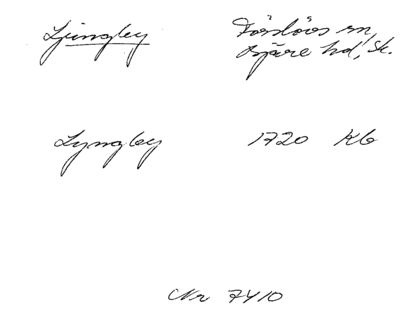 Ljungby Förslövs sn,
Bjäre hd, Sk.
Lyngby 1720 Kb
Nr 7410